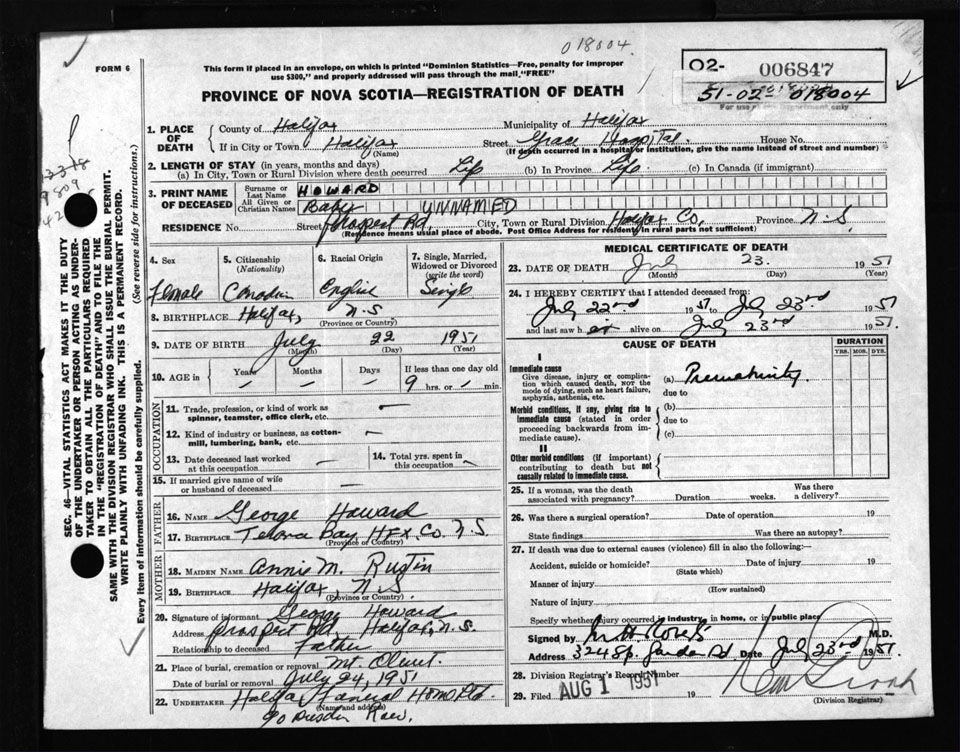 018004
FORM 6
This form if placed in an envelope, on which is printed "Dominion Statistics—Free, penalty for improper
use $300," and properly addressed will pass through the mail "FREE"
PROVINCE OF NOVA SCOTIA—REGISTRATION OF DEATH
O2- 006847
51-02-018004
For use of Department only
SEC. 46—VITAL STATISTICS ACT MAKES IT THE DUTY
OF THE UNDERTAKER OR PERSON ACTING AS UNDER-
TAKER TO OBTAIN ALL THE PARTICULARS REQUIRED
IN THE "REGISTRATION OF DEATH" AND TO FILE THE
SAME WITH THE DIVISION REGISTRAR WHO SHALL ISSUE THE BURIAL PERMIT.
WRITE PLAINLY WITH UNFADING INK. THIS IS A PERMANENT RECORD.
Every item of information should be carefully supplied. (See reverse side for instructions.)
1. PLACE OF DEATH County of Halifax Municipality of Halifax
If in City or Town Halifax (Name) Street Grace Hospital House No.
(If death occurred in a hospital or institution, give the name instead of street and number)
2. LENGTH OF STAY (in years, months and days)
(a) In City, Town or Rural Division where death occurred Life (b) In Province Life (c) In Canada (if immigrant)
3. PRINT NAME OF DECEASED Surname or Last Name HOWARD
All Given or Christian Names Baby UNNAMED
RESIDENCE No. Street Prospect Rd, City, Town or Rural Division Halifax Co. Province N.S.
(Residence means usual place of abode. Post Office Address for residents in rural parts not sufficient)
4. Sex Female
5. Citizenship (Nationality) Canadian
6. Racial Origin English
7. Single, Married, Widowed or Divorced (write the word) Single
8. BIRTHPLACE Halifax, N.S
(Province or Country)
9. DATE OF BIRTH July (Month) 22 (Day) 1951 (Year)
10. AGE in Years / Months / Days / If less than one day old 9 hrs. or / min.
OCCUPATION
11. Trade, profession, or kind of work as spinner, teamster, office clerk, etc. —
12. Kind of industry or business, as cotton-mill, lumbering, bank, etc. —
13. Date deceased last worked at this occupation —
14. Total yrs. spent in this occupation —
15. If married give name of wife or husband of deceased —
FATHER
16. NAME George Howard
17. BIRTHPLACE Bay HFX. Co. N.S.
(Province or Country)
MOTHER
18. MAIDEN NAME Annie M. Rustin
19. BIRTHPLACE Halifax N.S.
(Province or Country)
20. Signature of informant George Howard
Address Prospect Rd, Halifax, N.S.
Relationship to deceased Father
21. Place of burial, cremation or removal Mt. Olivet.
Date of burial or removal July 24, 1951
22. UNDERTAKER Halifax Funeral Home Ltd.
(Name and address)
90 Dresden Row.
MEDICAL CERTIFICATE OF DEATH
23. DATE OF DEATH July (Month) 23. (Day) 1951 (Year)
24. I HEREBY CERTIFY that I attended deceased from:
July 22nd 1951 to July 23rd 1951
and last saw her alive on July 23rd 1951.
CAUSE OF DEATH
DURATION
YRS. MOS. DYS.
I
Immediate cause
Give disease, injury or complication which caused death, not the mode of dying, such as heart failure, asphyxia, asthenia, etc.
(a) Prematurity
due to
Morbid conditions, if any, giving rise to immediate cause (stated in order proceeding backwards from immediate cause).
(b)
due to
(c)
II
Other morbid conditions (if important) contributing to death but not causally related to immediate cause.
25. If a woman, was the death associated with pregnancy? Duration weeks. Was there a delivery?
26. Was there a surgical operation? Date of operation 19
State findings Was there an autopsy?
27. If death was due to external causes (violence) fill in also the following:—
Accident, suicide or homicide? (State which) Date of injury 19
Manner of injury (How sustained)
Nature of injury
Specify whether injury occurred in industry, in home, or in public place
Signed by M.D.
Address 324 Rd Date July 23rd 1951.
28. Division Registrar's Record Number
29. Filed AUG 1 1951 19
(Division Registrar)